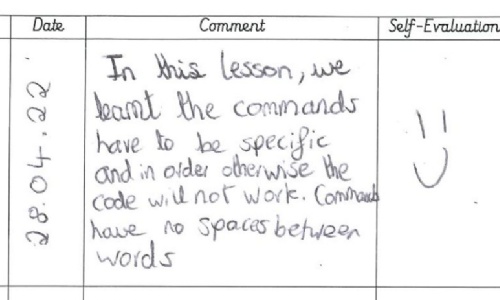 Date Comment Self-Evaluation
28.04.22
In this lesson, we
learnt the commands
have to be specific
and in order otherwise the
code will not work. Commands
have no spaces between
words